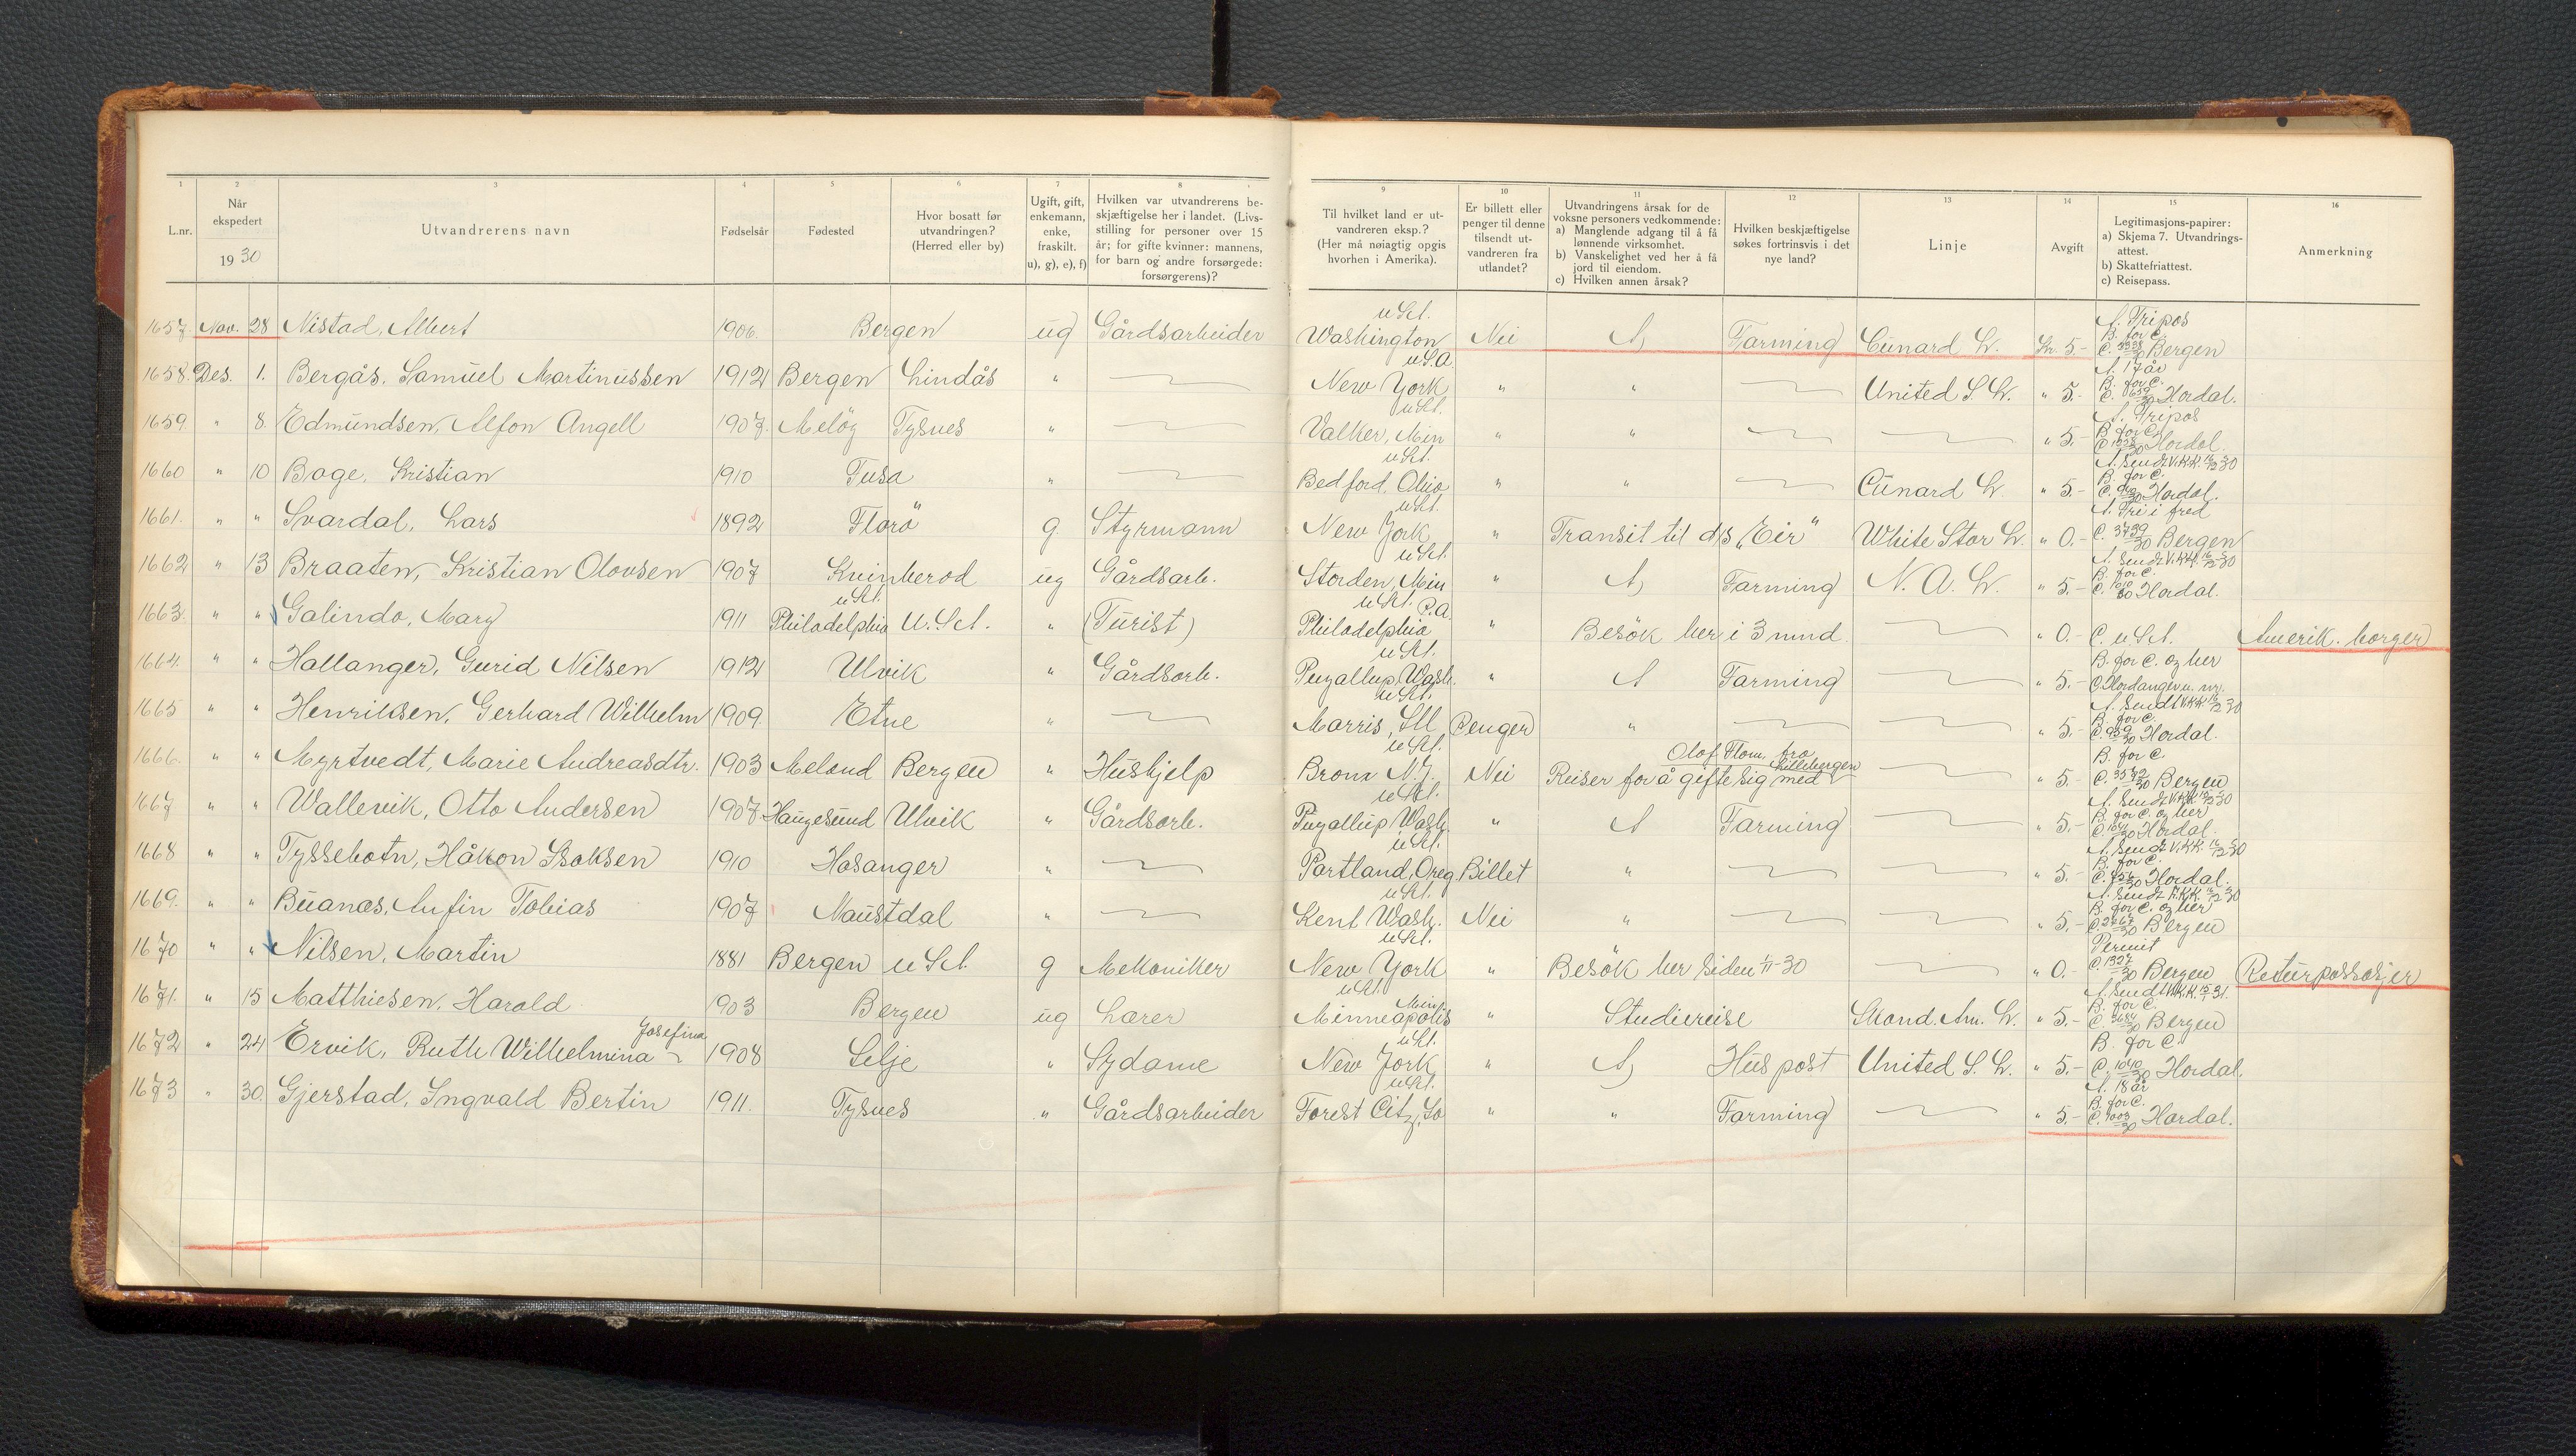 1 2 3 4 5 6 7 8 9 10 11 12 13 14 15 16
L.nr.
Når ekspedert
1930
Utvandrerens navn
Fødselsår
Fødested
Hvor bosatt før utvandringen? (Herred eller by)
Ugift, gift, enkemann, enke, fraskilt. u), g), e), f)
Hvilken var utvandrerens be-
skjæftigelse her i landet. (Livs-
stilling for personer over 15
år; for gifte kvinner: mannens,
for barn og andre forsørgede:
forsørgerens)?
Til hvilket land er ut-
vandreren eksp.?
(Her må nøiagtig opgis
hvorhen i Amerika).
Er billett eller
penger til denne
tilsendt ut-
vandreren fra
utlandet?
Utvandringens årsak for de
voksne personers vedkommende:
a) Manglende adgang til å få
lønnende virksomhet.
b) Vanskelighet ved her å få
jord til eiendom.
c) Hvilken annen årsak?
Hvilken beskjæftigelse
søkes fortrinsvis i det
nye land?
Linje
Avgift
Legitimasjons-papirer:
a) Skjema 7. Utvandrings-
attest.
b) Skattefriattest.
c) Reisepass.
Anmerkning
1657. Nov. 28 Nistad, Albert 1906. Bergen ug Gårdsarbeider Washington U.S.A. Nei A Farming Cunard L. Kr. 5.- A. Fripas B. for C. Bergen
1658. Des. 1. Bergås, Samuel Martinussen 1912 Bergen Lindås " — New York U.S.A. " " — United S. L. " 5.- A. 17 år B. for C. Hordal.
1659 " 8. Edmundsen, Alfon Angell 1907. Meløy Tysnes " — Valker, Min U.S.A. " " — — " 5.- A. Fripas B. for C. Hordal.
1660 " 10 Boge, Kristian 1910 Fusa " — Bedford, Ohio U.S.A. " " — Cunard L. " 5.- A. Sendt V.K.K. B. for C. Hordal.
1661. " " Svardal, Lars 1892 Florö g. Styrmann New York U.S.A. " Transit til d/s "Eir" White Star L. " 0.- A. Fri i fred C. 3739/30 Bergen
1662 " 13 Braaten, Kristian Olovsen 1907 Kvinherod ug Gårdsarb. Storden, Min U.S.A. " A Farming N. A. L. " 5.- A. Sendt V.K.K. B. for C. Hordal.
1663. " " Galindo, Mary 1911 Philadelphia U.S.A. U.S.A. " (Turist) Philadelphia P.A. U.S.A. " Besök her i 3 mnd — " 0.- C. U.S.A. Amerik. borger
1664. " " Hallanger, Gurid Nilsen 1912 Ulvik " Gårdsarb. Puyallup, Wash. U.S.A. " A Farming — " 5.- B. for C. og her C. Hordanger u. nr.
1665 " " Henriksen, Gerhard Wilhelm 1909. Etne " — Morris, Ill U.S.A. Penger " — — " 5.- A. Sendt V.K.K. B. for C. Hordal.
1666. " " Myrtvedt, Marie Andreasdtr. 1903 Meland Bergen " Hushjelp Bronx N.J. U.S.A. Nei Reiser for å gifte sig med Olaf Flom, fra — " 5.- B. for C. Bergen
1667 " " Wallevik, Otto Andersen 1907. Haugesund Ulvik " Gårdsarb. Puyallup Wash. U.S.A. " A Farming — " 5.- A. Sendt V.K.K. B. for C. og her Hordal.
1668 " " Tyssebotn, Håkon Isaksen 1910 Hosanger " — Portland, Oreg. U.S.A. Billet " — — " 5.- A. Sendt V.K.K. B. for C. Hordal.
1669. " " Buanæs, Anfin Tobias 1907 Naustdal " — Kent Wash. U.S.A. Nei " — — " 5.- A. Sendt V.K.K. B. for C. og her Bergen
1670 " " Nilsen, Martin 1881 Bergen U.S.A. g Mekaniker New York U.S.A. " Besök her siden 1/11-30 — " 0.- Permit C. 1327/30 Bergen Returpassasjer
1671. " 15 Matthiesen, Harald 1903 Bergen ug Lærer Minneapolis Min. U.S.A. " Studiereise Skand. Am. L. " 5.- A. Sendt V.K.K. B. for C. Bergen
1672 " 24 Ervik, Ruth Wilhelmina Josefina 1908 Selje " Sydame New York U.S.A. " A Hus post United S. L. " 5.- B. for C. C. 1040/30 Hordal.
1673 " 30. Gjerstad, Ingvald Bertin 1911. Tysnes " Gårdsarbeider Forest City, Io U.S.A. " " Farming — " 5.- A. 18 år B. for C. C. 1003/30 Hordal.